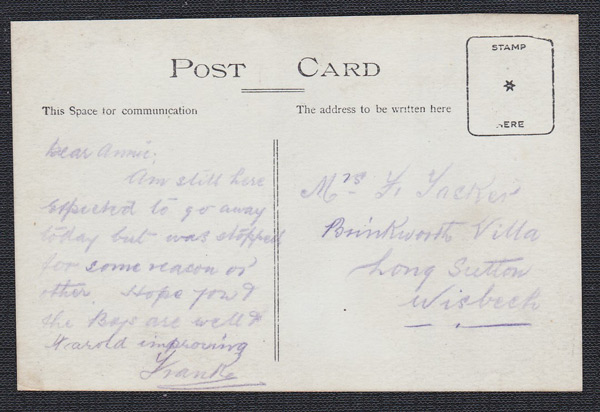 POST CARD
STAMP
HERE
This Space for communication
The address to be written here
Dear Annie,
Am still here
Expected to go away
today but was stopped
for some reason or
other. Hope you &
the Boys are well &
Harold improving
Frank
Mrs F. Tacker
Brinkworth Villa
Long Sutton
Wisbech